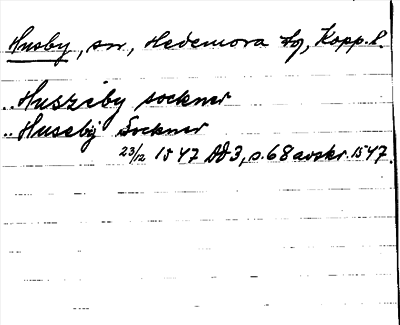 Husby, sn, Hedemora tg, Kopp. l.
..Huszeby sockner
..Husebÿ Sockner
23/12 1547 DD3, s. 68 avskr. 1547.